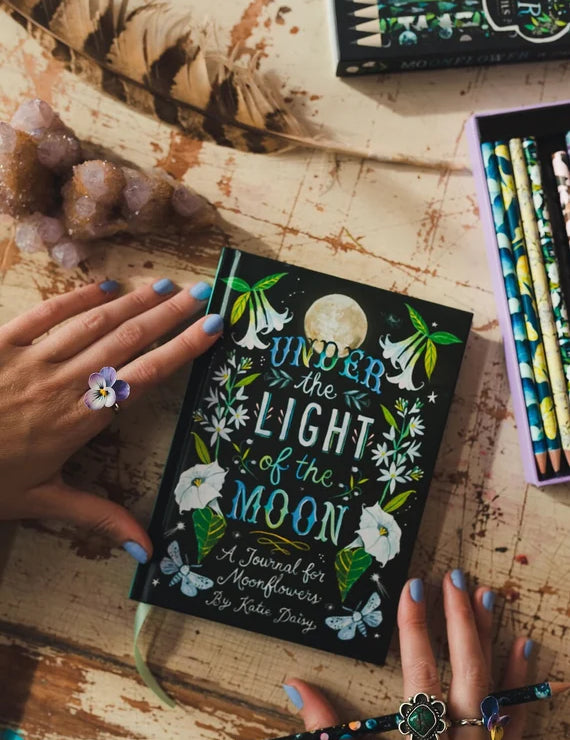 MOONFLOWER
UNDER
the
LIGHT
of the
MOON
A Journal for
Moonflowers
By Katie Daisy